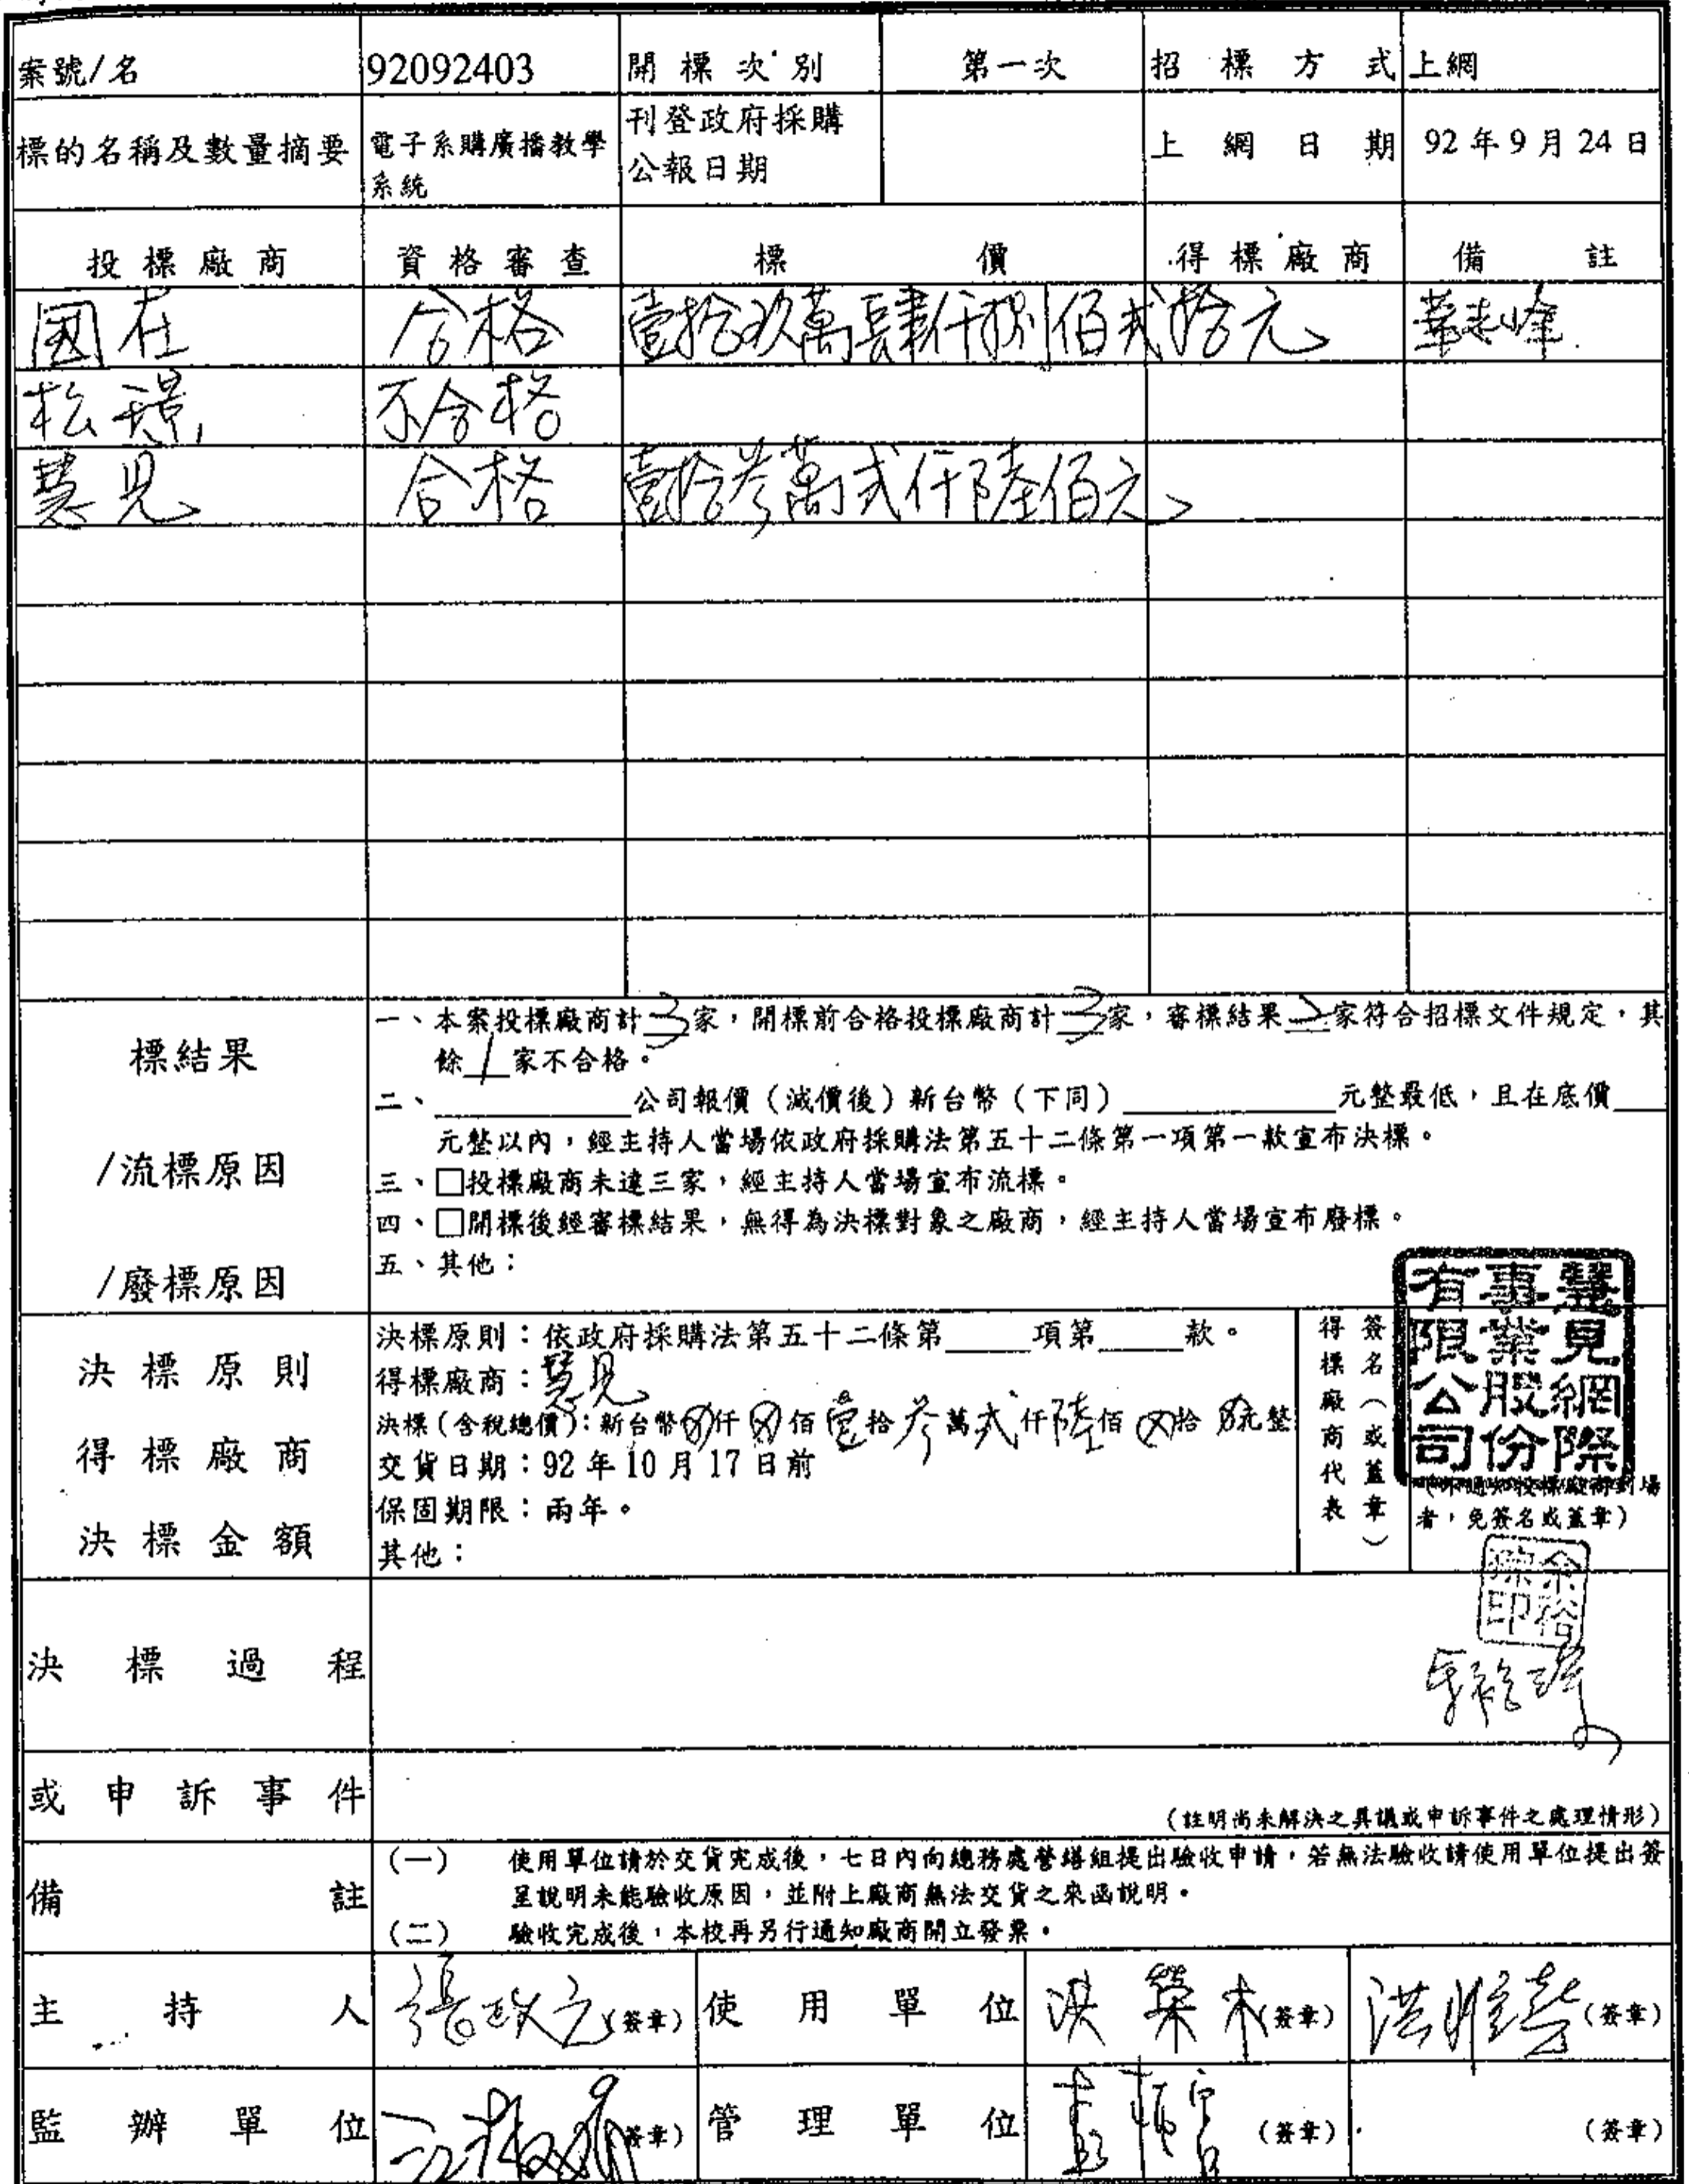 案號/名 92092403 開標次別 第一次 招標方式 上網
標的名稱及數量摘要 電子系購廣播教學系統 刊登政府採購公報日期 上網日期 92年9月24日
投標廠商 資格審查 標價 得標廠商 備註
國在 合格 壹拾玖萬肆仟捌佰貳拾元
松璟 不合格
慧見 合格 壹拾參萬貳仟陸佰元
標結果
/流標原因
/廢標原因
一、本案投標廠商計3家，開標前合格投標廠商計3家，審標結果2家符合招標文件規定，其
餘1家不合格。
二、________公司報價（減價後）新台幣（下同）________元整最低，且在底價__
元整以內，經主持人當場依政府採購法第五十二條第一項第一款宣布決標。
三、□投標廠商未達三家，經主持人當場宣布流標。
四、□開標後經審標結果，無得為決標對象之廠商，經主持人當場宣布廢標。
五、其他：
決標原則
得標廠商
決標金額
決標原則：依政府採購法第五十二條第____項第____款。
得標廠商：慧見
決標（含稅總價）：新台幣⊗仟⊗佰壹拾參萬貳仟陸佰⊗拾⊗元整
交貨日期：92年10月17日前
保固期限：兩年。
其他：
得標廠商代表
簽名（或蓋章）
慧見網際
事業股份
有限公司
（不通知投標廠商到場
者，免簽名或蓋章）
決標過程
或申訴事件
（註明尚未解決之異議或申訴事件之處理情形）
備註
（一） 使用單位請於交貨完成後，七日內向總務處營繕組提出驗收申請，若無法驗收請使用單位提出簽
呈說明未能驗收原因，並附上廠商無法交貨之來函說明。
（二） 驗收完成後，本校再另行通知廠商開立發票。
主持人 張政元 (簽章) 使用單位 洪榮木 (簽章) (簽章)
監辦單位 (簽章) 管理單位 (簽章) (簽章)